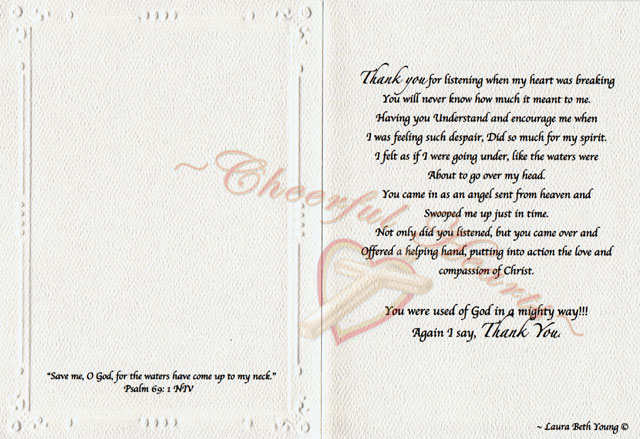 "Save me, O God, for the waters have come up to my neck."
Psalm 69: 1 NIV
Thank you for listening when my heart was breaking
You will never know how much it meant to me.
Having you Understand and encourage me when
I was feeling such despair, Did so much for my spirit.
I felt as if I were going under, like the waters were
About to go over my head.
You came in as an angel sent from heaven and
Swooped me up just in time.
Not only did you listened, but you came over and
Offered a helping hand, putting into action the love and
compassion of Christ.
You were used of God in a mighty way!!!
Again I say, Thank You.
~ Laura Beth Young ©
~Cheerful Hearts~